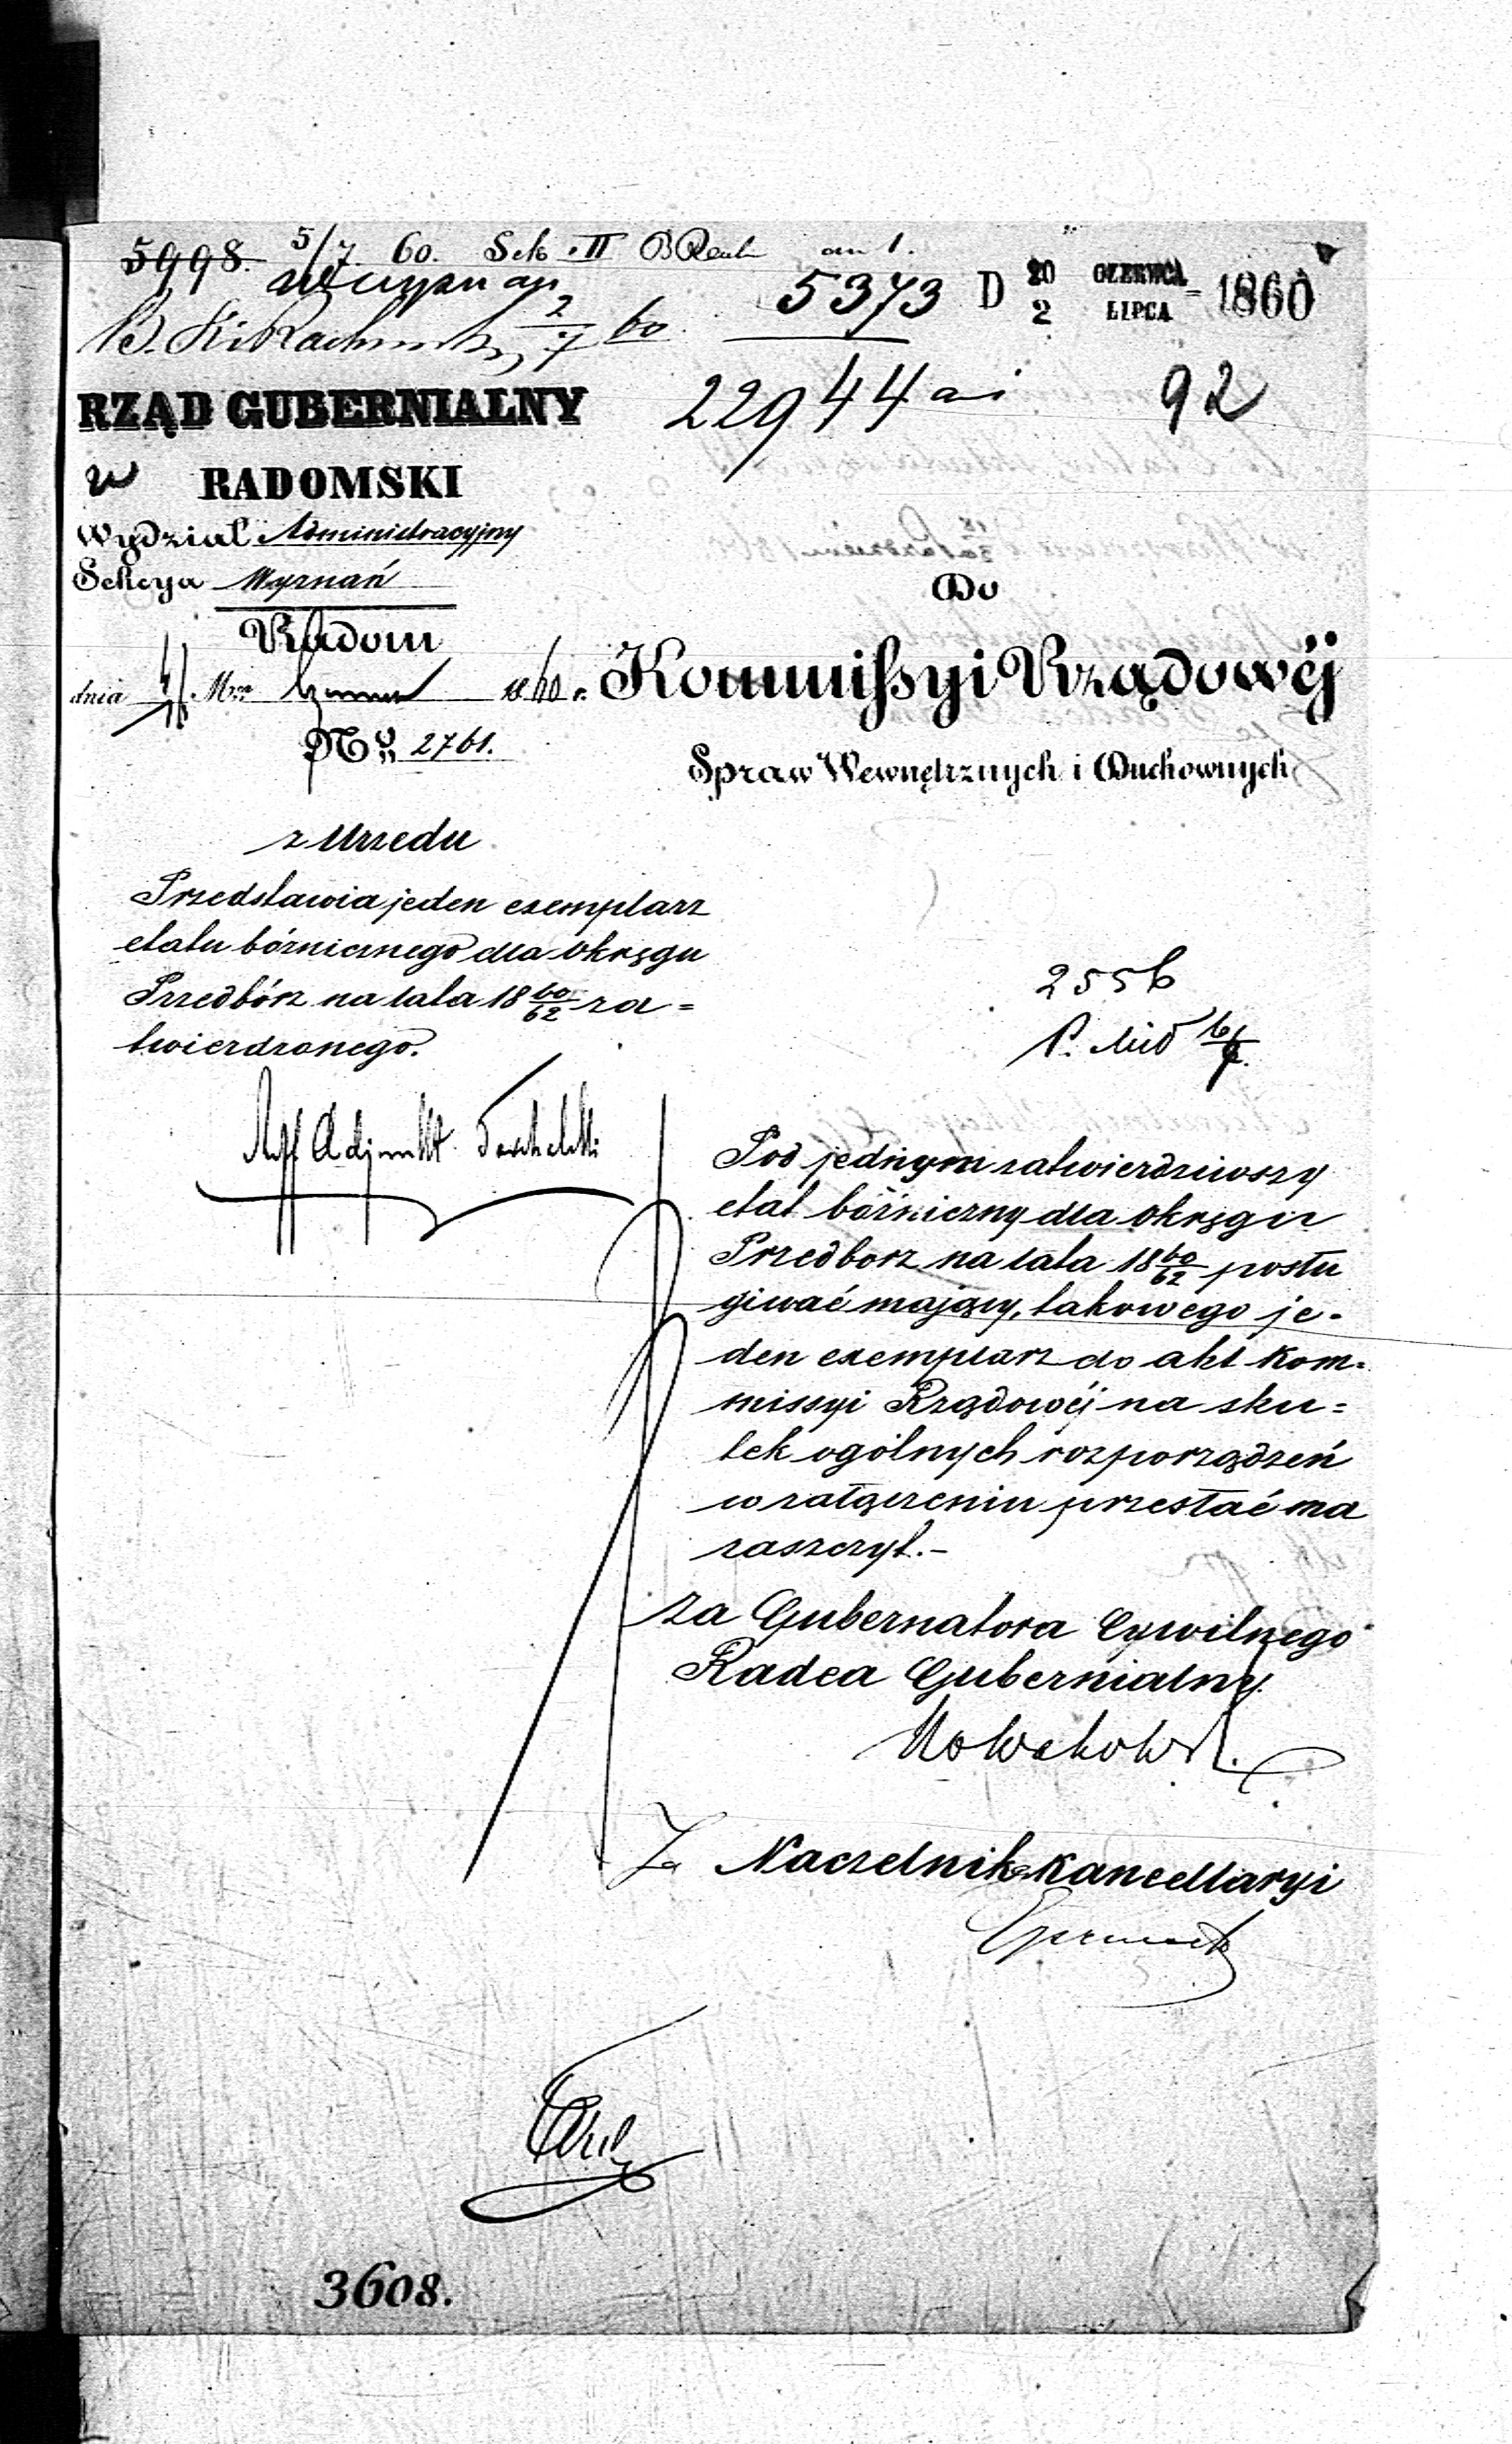 5998. 5/7. 60. Sek. II
5373 D 20 CZERWCA
2 LIPCA - 1860
2/7 60
RZĄD GUBERNIALNY
22944
92
w RADOMSKI
Wydział Administracyjny
Sekcya Wyznań
Radom
dnia Mca 1860 r.
No 2761.
Do
Kommissyi Rządowéj
Spraw Wewnętrznych i Duchownych
z Urzedu
Przedstawia jeden exemplarz
etatu bóżnicznego dla Okręgu
Przedbórz na lata 18 60/62 za=
twierdzonego.
2556
Adjunkt
Pod jednym zatwierdziwszy
etat bóżniczny dla Okręgu
Przedborz na lata 18 60/62 posłu
giwać mający, takowego je-
den exemplarz do akt Kom=
missyi Rządowéj na sku=
tek ogólnych rozporządzeń
w załączeniu przesłać ma
zaszczyt.-
za Gubernatora Cywilnego
Radca Gubernialny
Nowakowski.
Za Naczelnika Kancellaryi
3608.